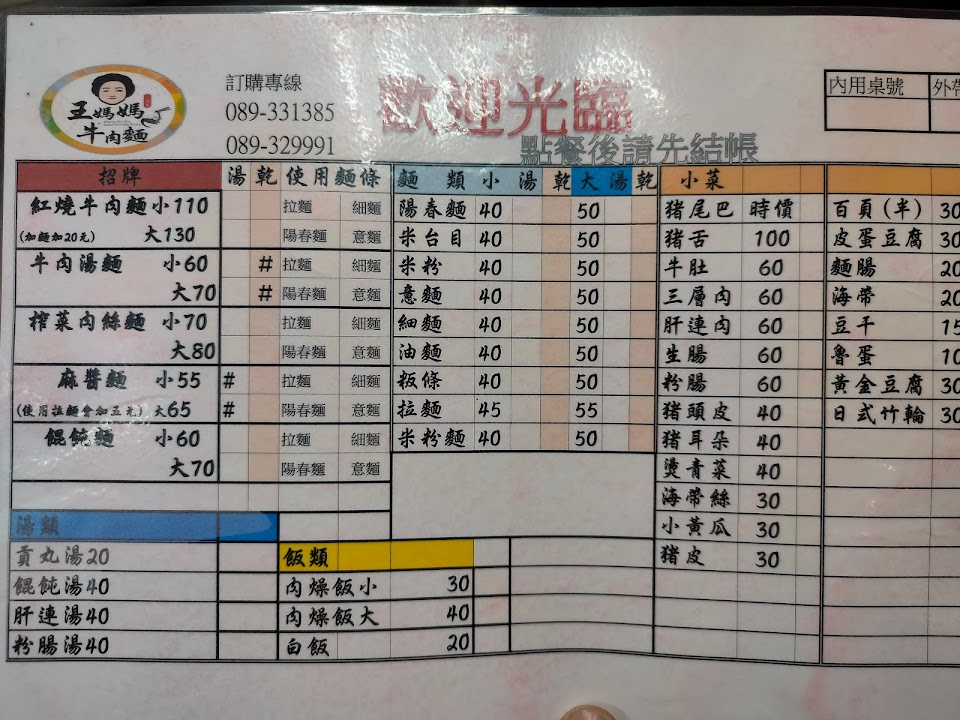 王媽媽
牛肉麵
訂購專線
089-331385
089-329991
歡迎光臨
點餐後請先結帳
內用桌號
外帶
招牌 湯 乾 使用麵條
紅燒牛肉麵小110 拉麵 細麵
(加麵加20元) 大130 陽春麵 意麵
牛肉湯麵 小60 # 拉麵 細麵
大70 # 陽春麵 意麵
榨菜肉絲麵 小70 拉麵 細麵
大80 陽春麵 意麵
麻醬麵 小55 # 拉麵 細麵
(使用拉麵會加五元) 大65 # 陽春麵 意麵
餛飩麵 小60 拉麵 細麵
大70 陽春麵 意麵
麵 類 小 湯 乾 大 湯 乾
陽春麵 40 50
米台目 40 50
米粉 40 50
意麵 40 50
細麵 40 50
油麵 40 50
粄條 40 50
拉麵 45 55
米粉麵 40 50
小菜
豬尾巴 時價
豬舌 100
牛肚 60
三層肉 60
肝連肉 60
生腸 60
粉腸 60
豬頭皮 40
豬耳朵 40
燙青菜 40
海帶絲 30
小黃瓜 30
豬皮 30
百頁(半) 30
皮蛋豆腐 30
麵腸 20
海帶 20
豆干 15
魯蛋 10
黃金豆腐 30
日式竹輪 30
湯類
貢丸湯20
餛飩湯40
肝連湯40
粉腸湯40
飯類
肉燥飯小 30
肉燥飯大 40
白飯 20